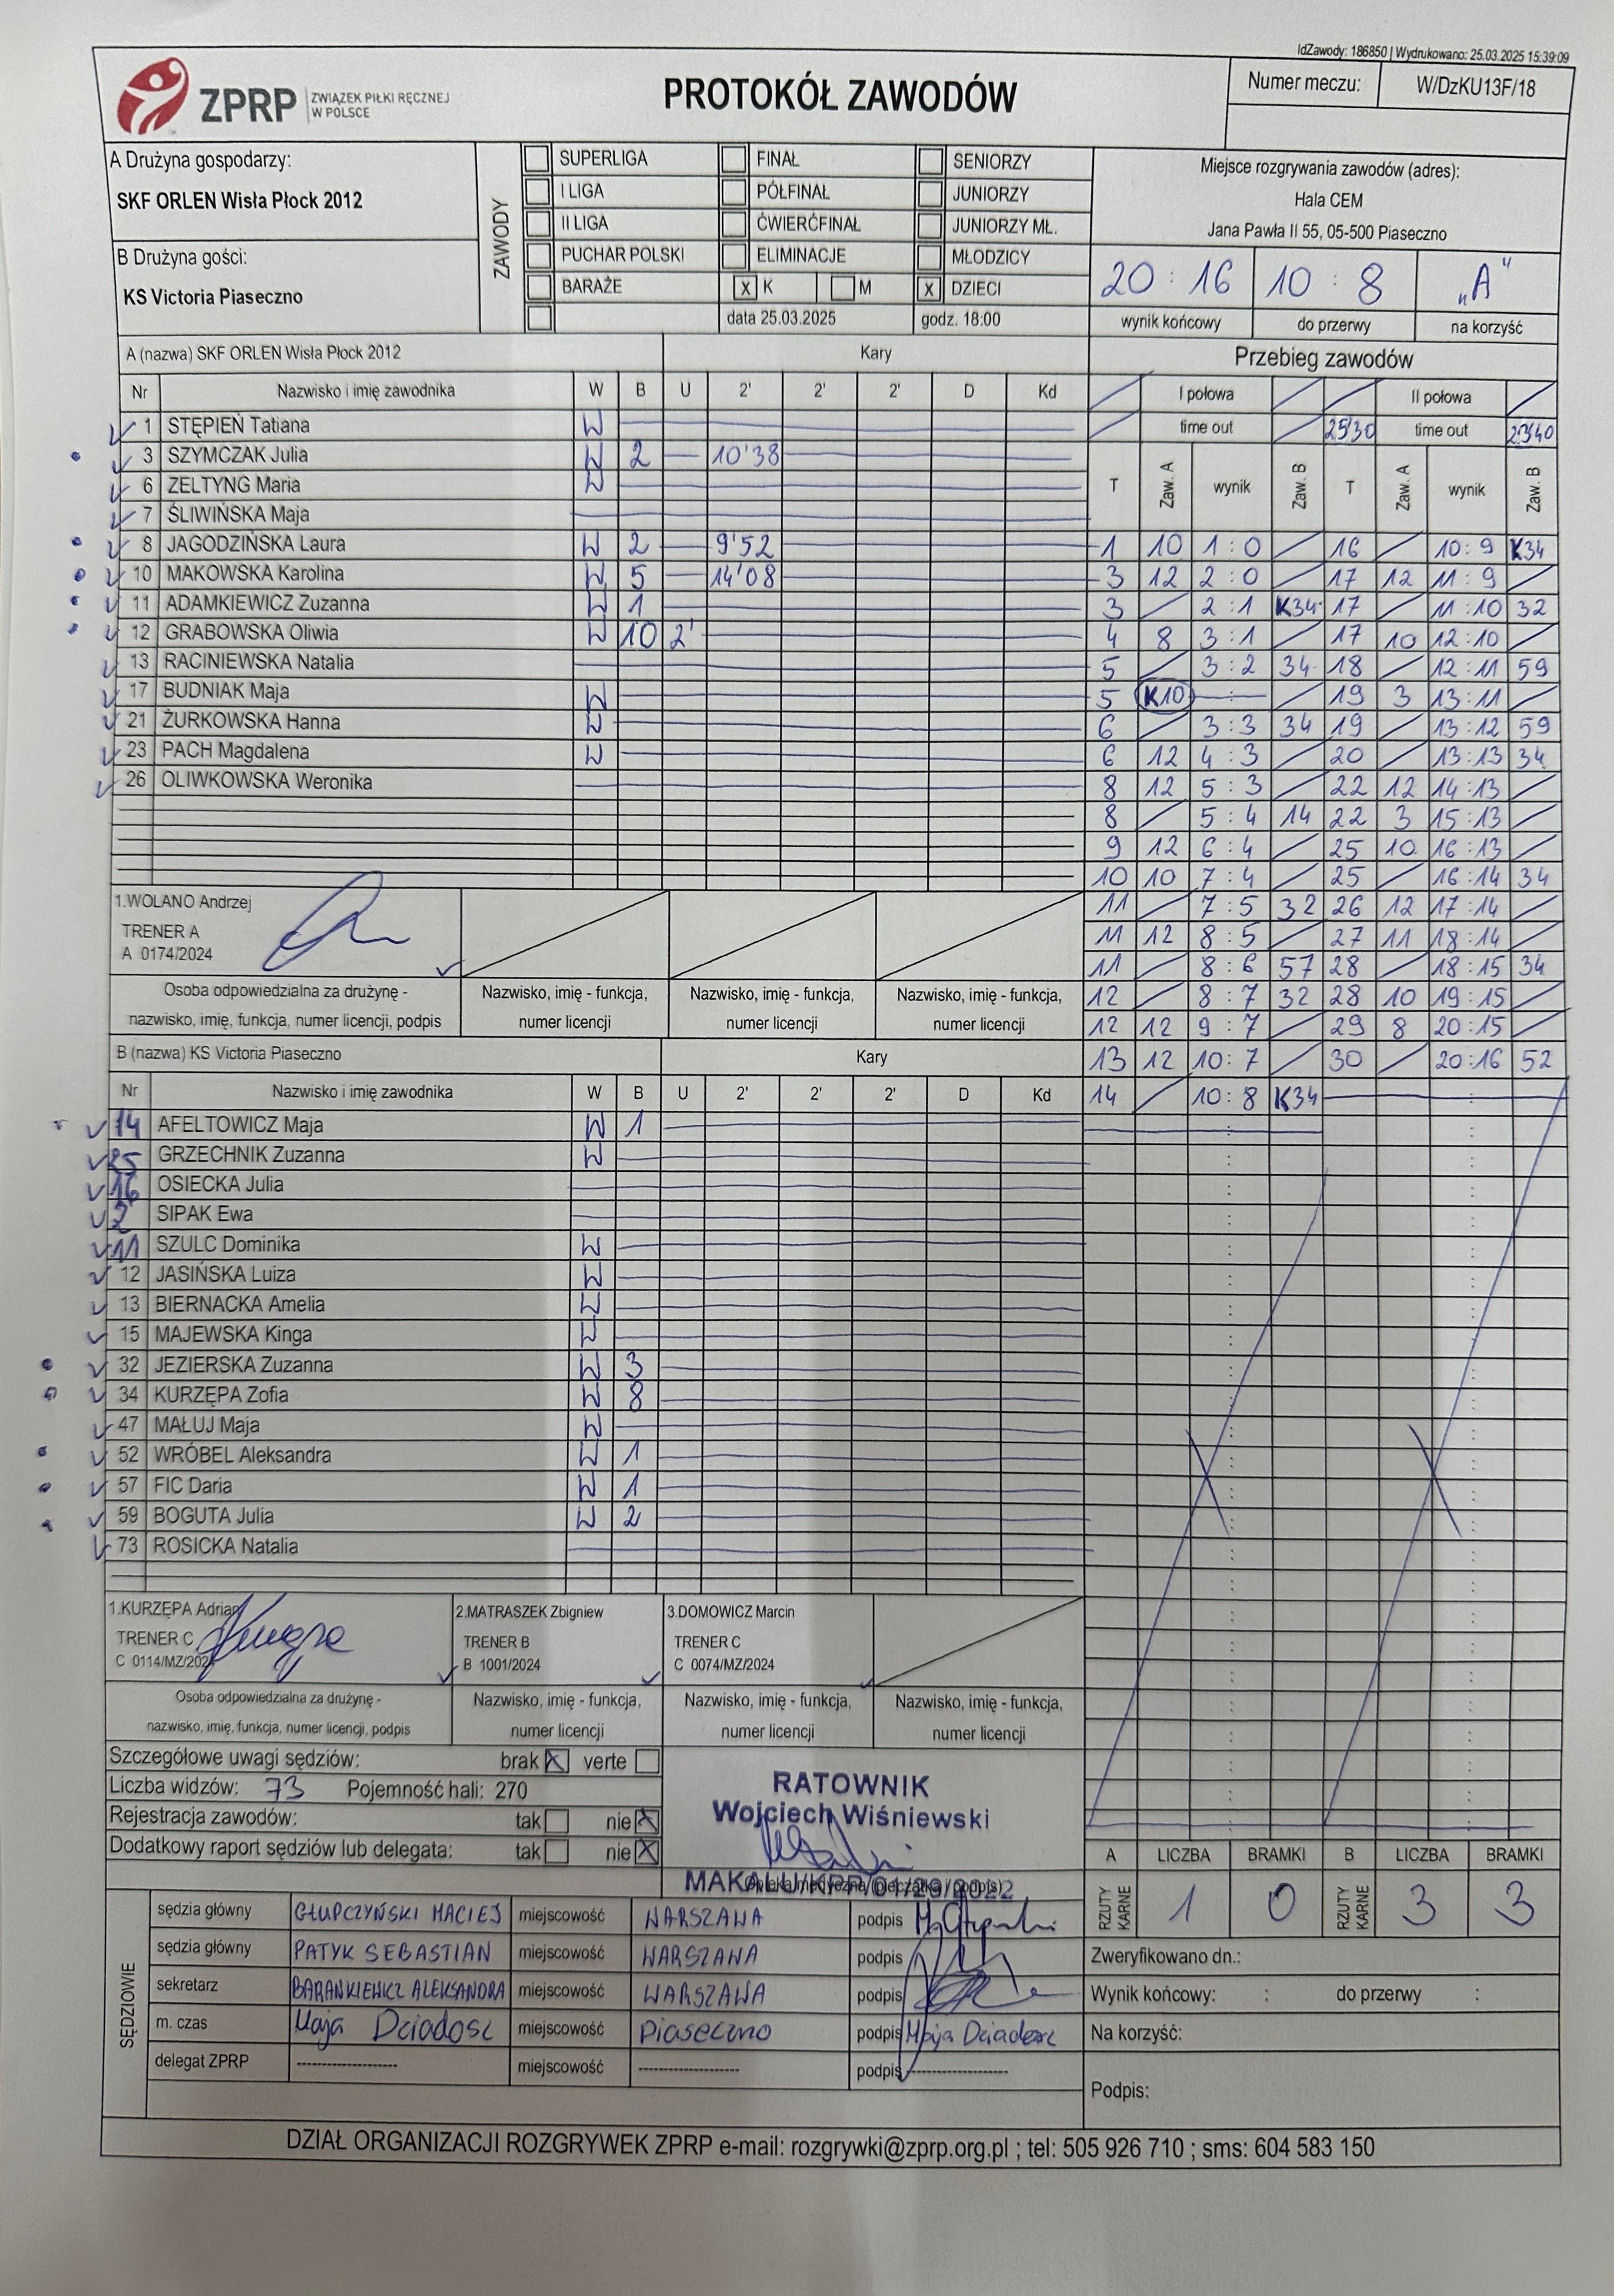 IdZawody: 186850 | Wydrukowano: 25.03.2025 15:39:09
ZPRP ZWIĄZEK PIŁKI RĘCZNEJ
W POLSCE
PROTOKÓŁ ZAWODÓW
Numer meczu: W/DzKU13F/18
A Drużyna gospodarzy:
SKF ORLEN Wisła Płock 2012
B Drużyna gości:
KS Victoria Piaseczno
ZAWODY
SUPERLIGA FINAŁ SENIORZY
I LIGA PÓŁFINAŁ JUNIORZY
II LIGA ĆWIERĆFINAŁ JUNIORZY MŁ.
PUCHAR POLSKI ELIMINACJE MŁODZICY
BARAŻE x K M x DZIECI
data 25.03.2025 godz. 18:00
Miejsce rozgrywania zawodów (adres):
Hala CEM
Jana Pawła II 55, 05-500 Piaseczno
20 : 16 10 : 8 „A"
wynik końcowy do przerwy na korzyść
A (nazwa) SKF ORLEN Wisła Płock 2012 Kary
Nr Nazwisko i imię zawodnika W B U 2' 2' 2' D Kd
1 STĘPIEŃ Tatiana W
3 SZYMCZAK Julia W 2 10'38
6 ZELTYNG Maria W
7 ŚLIWIŃSKA Maja
8 JAGODZIŃSKA Laura W 2 9'52
10 MAKOWSKA Karolina W 5 14'08
11 ADAMKIEWICZ Zuzanna W 1
12 GRABOWSKA Oliwia W 10 2'
13 RACINIEWSKA Natalia
17 BUDNIAK Maja W
21 ŻURKOWSKA Hanna W
23 PACH Magdalena W
26 OLIWKOWSKA Weronika
1.WOLANO Andrzej
TRENER A
A 0174/2024
Osoba odpowiedzialna za drużynę -
nazwisko, imię, funkcja, numer licencji, podpis
Nazwisko, imię - funkcja,
numer licencji
Nazwisko, imię - funkcja,
numer licencji
Nazwisko, imię - funkcja,
numer licencji
B (nazwa) KS Victoria Piaseczno Kary
Nr Nazwisko i imię zawodnika W B U 2' 2' 2' D Kd
14 AFELTOWICZ Maja W 1
GRZECHNIK Zuzanna W
16 OSIECKA Julia
2 SIPAK Ewa
11 SZULC Dominika W
12 JASIŃSKA Luiza W
13 BIERNACKA Amelia W
15 MAJEWSKA Kinga W
32 JEZIERSKA Zuzanna W 3
34 KURZĘPA Zofia W 8
47 MAŁUJ Maja W
52 WRÓBEL Aleksandra W 1
57 FIC Daria W 1
59 BOGUTA Julia W 2
73 ROSICKA Natalia
1.KURZĘPA Adrian
TRENER C
C 0114/MZ/202
2.MATRASZEK Zbigniew
TRENER B
B 1001/2024
3.DOMOWICZ Marcin
TRENER C
C 0074/MZ/2024
Osoba odpowiedzialna za drużynę -
nazwisko, imię, funkcja, numer licencji, podpis
Nazwisko, imię - funkcja,
numer licencji
Nazwisko, imię - funkcja,
numer licencji
Nazwisko, imię - funkcja,
numer licencji
Przebieg zawodów
I połowa II połowa
time out 25'30 time out 23'40
T Zaw. A wynik Zaw. B T Zaw. A wynik Zaw. B
1 10 1 : 0 16 10 : 9 K34
3 12 2 : 0 17 12 11 : 9
3 2 : 1 K34 17 11 : 10 32
4 8 3 : 1 17 10 12 : 10
5 3 : 2 34 18 12 : 11 59
5 K10 : 19 3 13 : 11
6 3 : 3 34 19 13 : 12 59
6 12 4 : 3 20 13 : 13 34
8 12 5 : 3 22 12 14 : 13
8 5 : 4 14 22 3 15 : 13
9 12 6 : 4 25 10 16 : 13
10 10 7 : 4 25 16 : 14 34
11 7 : 5 32 26 12 17 : 14
11 12 8 : 5 27 11 18 : 14
11 8 : 6 57 28 18 : 15 34
12 8 : 7 32 28 10 19 : 15
12 12 9 : 7 29 8 20 : 15
13 12 10 : 7 30 20 : 16 52
14 10 : 8 K34 :
Szczegółowe uwagi sędziów: brak X verte
Liczba widzów: 73 Pojemność hali: 270
Rejestracja zawodów: tak nie X
Dodatkowy raport sędziów lub delegata: tak nie X
RATOWNIK
Wojciech Wiśniewski
MAKALU/KPP/01/29/2022
A LICZBA BRAMKI B LICZBA BRAMKI
RZUTY KARNE 1 0 RZUTY KARNE 3 3
SĘDZIOWIE
sędzia główny GŁUPCZYŃSKI MACIEJ miejscowość WARSZAWA podpis
sędzia główny PATYK SEBASTIAN miejscowość WARSZAWA podpis
sekretarz BARANKIEWICZ ALEKSANDRA miejscowość WARSZAWA podpis
m. czas Maja Dziadosz miejscowość Piaseczno podpis Maja Dziadosz
delegat ZPRP -------------------- miejscowość -------------------- podpis --------------------
Zweryfikowano dn.:
Wynik końcowy: : do przerwy :
Na korzyść:
Podpis:
DZIAŁ ORGANIZACJI ROZGRYWEK ZPRP e-mail: rozgrywki@zprp.org.pl ; tel: 505 926 710 ; sms: 604 583 150